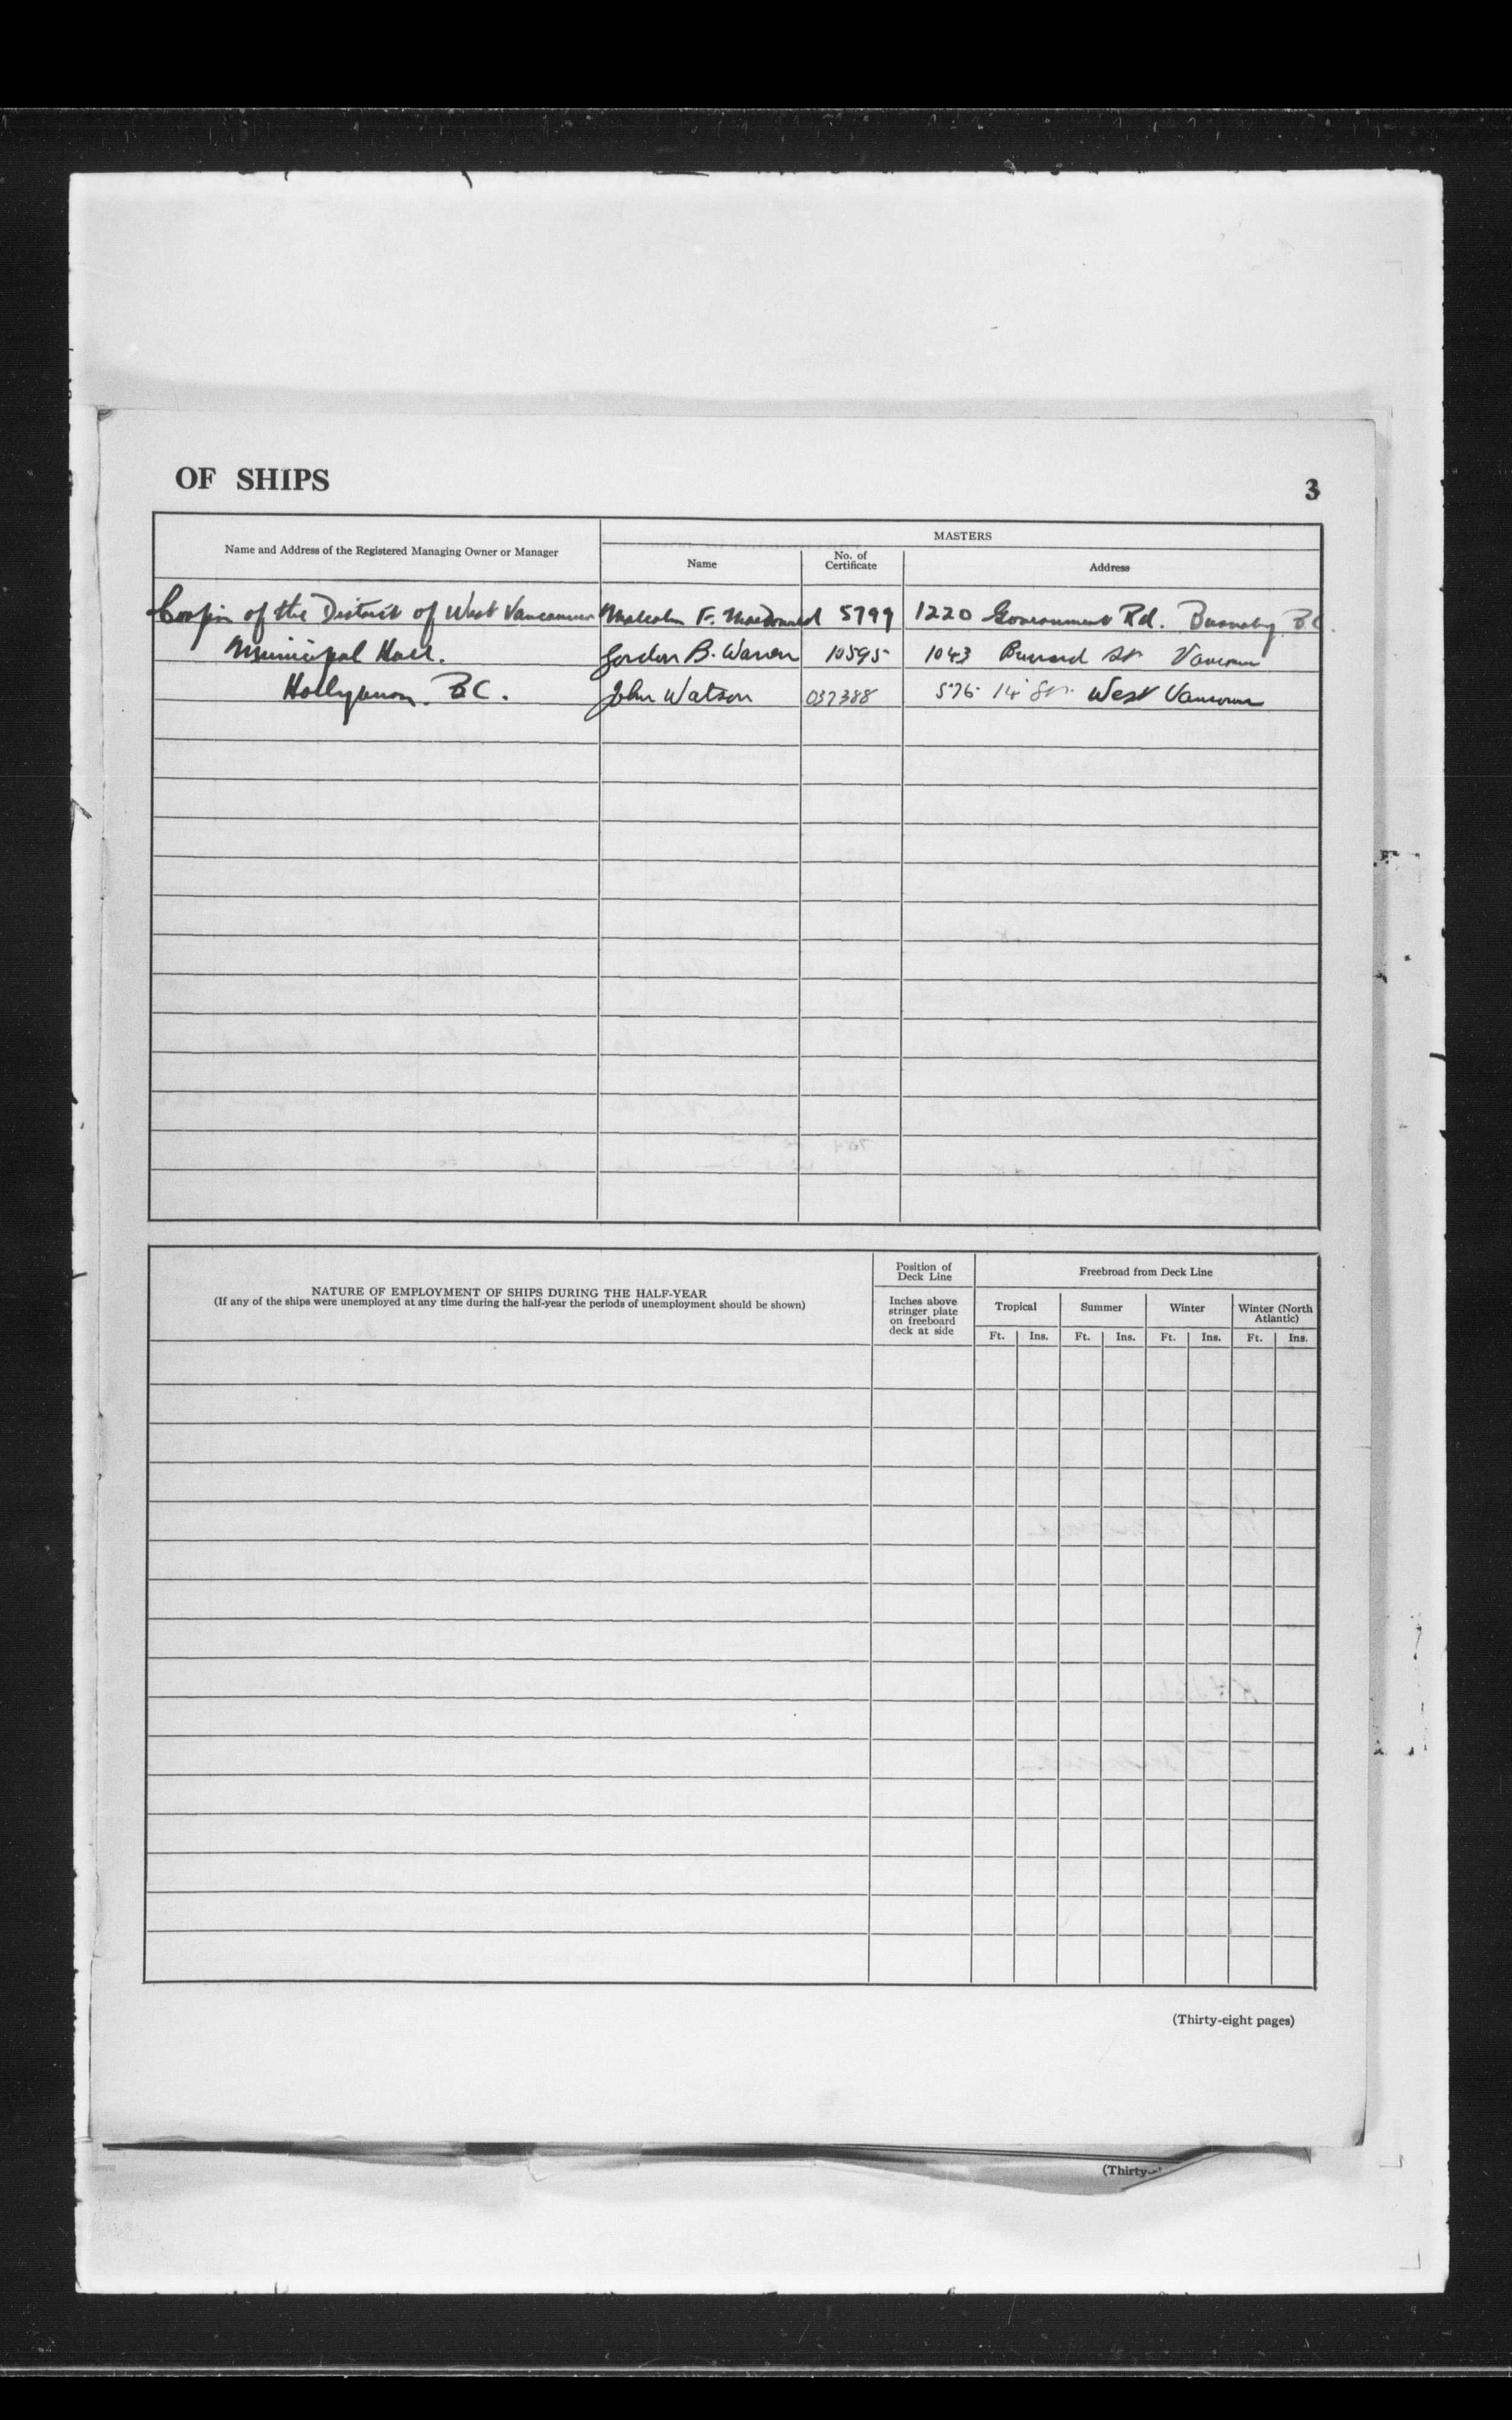 OF SHIPS
3
Name and Address of the Registered Managing Owner or Manager
MASTERS
Name
No. of
Certificate
Address
Corp'n of the District of West Vancouver Malcolm F. MacDonald 5799 1220 Government Rd. Burnaby B.C.
Municipal Hall. Gordon B. Warren 10595 1043 Burrard St Vancouver
Hollyburn. B.C. John Watson 037388 576 14 St. West Vancouver
NATURE OF EMPLOYMENT OF SHIPS DURING THE HALF-YEAR
(If any of the ships were unemployed at any time during the half-year the periods of unemployment should be shown)
Position of
Deck Line
Inches above
stringer plate
on freeboard
deck at side
Freebroad from Deck Line
Tropical Summer Winter Winter (North
Atlantic)
Ft. Ins. Ft. Ins. Ft. Ins. Ft. Ins.
(Thirty-eight pages)
(Thirty-